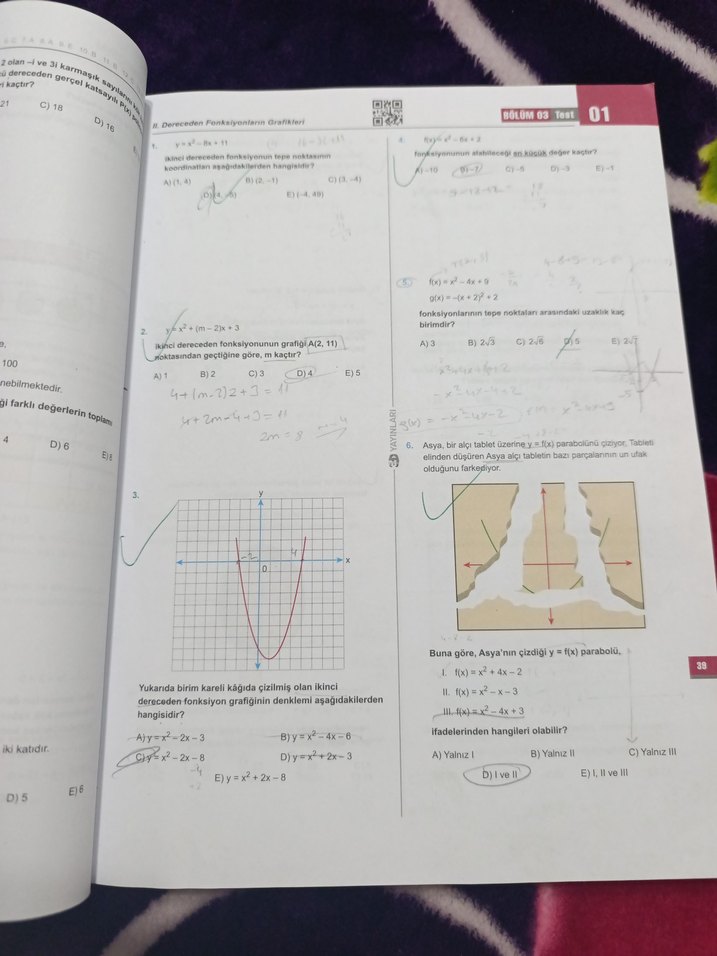 2 olan –i ve 3i karmaşık sayılarını
dereceden gerçel katsayılı P(x)
kaçtır?
21
C) 18
D) 16
100
nebilmektedir.
ği farklı değerlerin toplamı
4
D) 6
E) 8
iki katıdır.
D) 5
E) 6
II. Dereceden Fonksiyonların Grafikleri
BÖLÜM 03 Test 01
1. y = x² – 8x + 11
ikinci dereceden fonksiyonun tepe noktasının
koordinatları aşağıdakilerden hangisidir?
A) (1, 4) B) (2, –1) C) (3, –4)
D) (4, –5) E) (–4, 49)
2. y = x² + (m – 2)x + 3
ikinci dereceden fonksiyonunun grafiği A(2, 11)
noktasından geçtiğine göre, m kaçtır?
A) 1 B) 2 C) 3 D) 4 E) 5
4+(m-2)2+3=11
4+2m-4+3=11
2m=8 m=4
3.
y
-2
4
x
0
Yukarıda birim kareli kâğıda çizilmiş olan ikinci
dereceden fonksiyon grafiğinin denklemi aşağıdakilerden
hangisidir?
A) y = x² – 2x – 3 B) y = x² – 4x – 6
C) y = x² – 2x – 8 D) y = x² + 2x – 3
-4
+2
E) y = x² + 2x – 8
4. f(x) = x² – 6x + 2
fonksiyonunun alabileceği en küçük değer kaçtır?
A) –10 B) –7 C) –5 D) –3 E) –1
5. f(x) = x² – 4x + 9
g(x) = –(x + 2)² + 2
fonksiyonlarının tepe noktaları arasındaki uzaklık kaç
birimdir?
A) 3 B) 2√3 C) 2√6 D) 5 E) 2√7
-x²-4x-4+2
g(x) = -x²-4x-2
YAYINLARI
6. Asya, bir alçı tablet üzerine y = f(x) parabolünü çiziyor. Tableti
elinden düşüren Asya alçı tabletin bazı parçalarının un ufak
olduğunu farkediyor.
Buna göre, Asya'nın çizdiği y = f(x) parabolü,
I. f(x) = x² + 4x – 2
II. f(x) = x² – x – 3
III. f(x) = x² – 4x + 3
ifadelerinden hangileri olabilir?
A) Yalnız I B) Yalnız II C) Yalnız III
D) I ve II E) I, II ve III
39